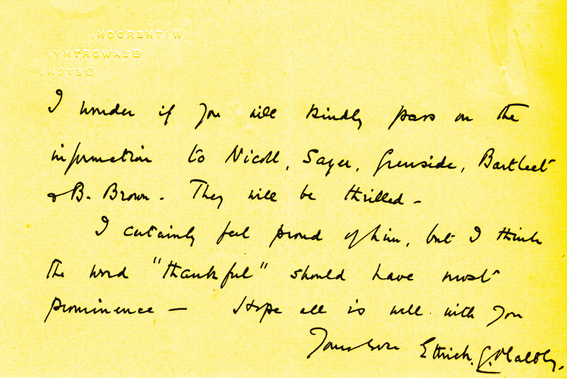 WITHERDON,
GERMANSWEEK,
DEVON.
I wonder if you will kindly pass on the
information to Nicoll, Sayer, Grenside, Bartleet
& B. Brown. They will be thrilled -
I certainly feel proud of him, but I think
the word "thankful" should have most
prominence — Hope all is well with you
Yours Ettrick. G. Maltby.